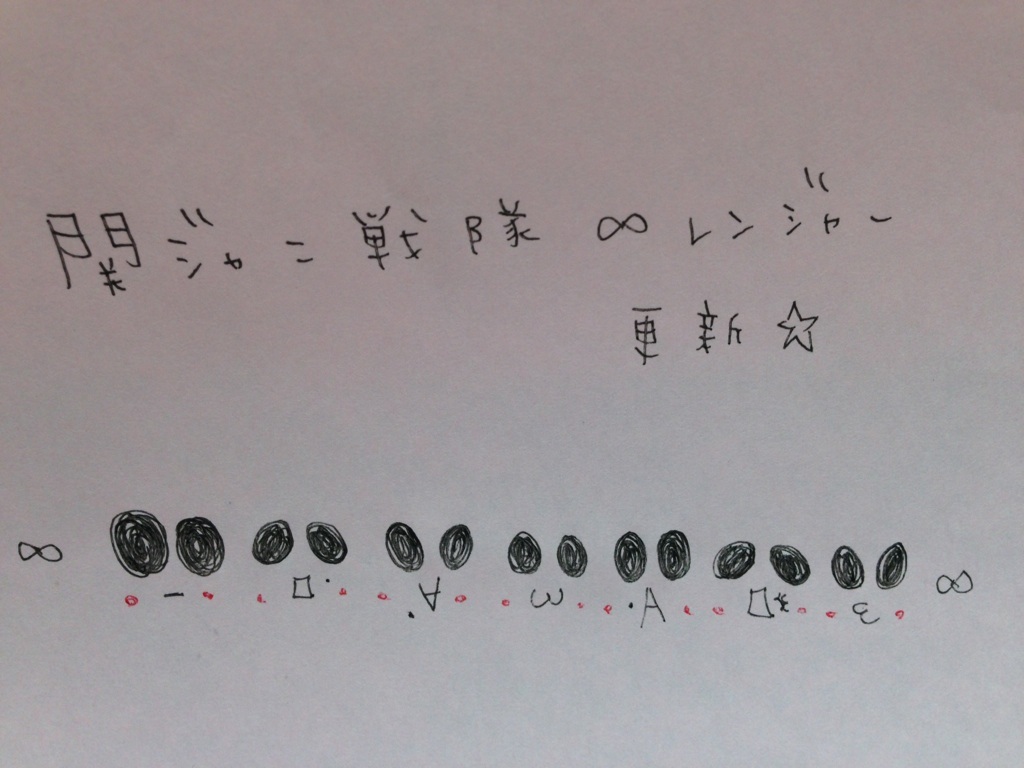 関ジャニ戦隊∞レンジャー
更新☆
∞ ∞